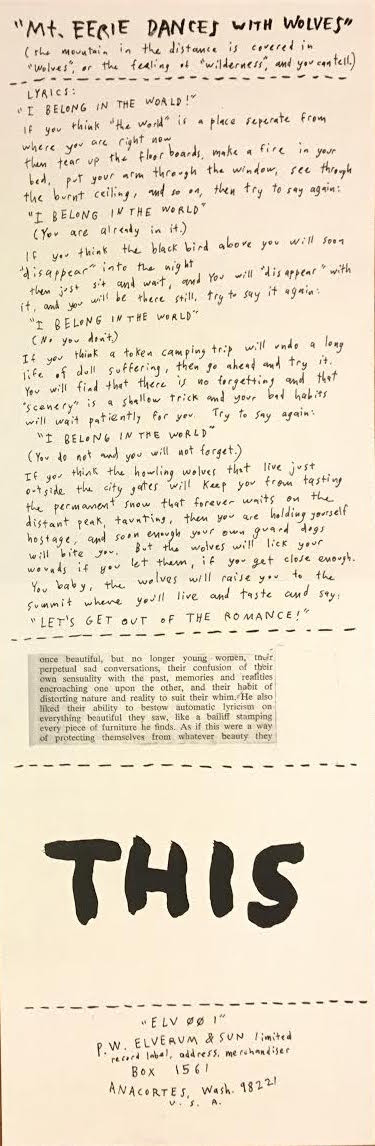 "Mt. EERIE DANCES WITH WOLVES"
(the mountain in the distance is covered in
"wolves", or the feeling of "wilderness", and you can tell.)
LYRICS:
"I BELONG IN THE WORLD!"
If you think "the world" is a place seperate from
where you are right now
then tear up the floor boards, make a fire in your
bed, put your arm through the window, see through
the burnt ceiling, and so on, then try to say again:
"I BELONG IN THE WORLD"
(You are already in it.)
If you think the black bird above you will soon
"disappear" into the night
then just sit and wait, and You will "disappear" with
it, and you will be there still, try to say it again:
"I BELONG IN THE WORLD"
(No you don't.)
If you think a token camping trip will undo a long
life of dull suffering, then go ahead and try it.
You will find that there is no forgetting and that
"scenery" is a shallow trick and your bad habits
will wait patiently for you. Try to say again:
"I BELONG IN THE WORLD"
(You do not and you will not forget.)
If you think the howling wolves that live just
outside the city gates will keep you from tasting
the permanent snow that forever waits on the
distant peak, taunting, then you are holding yourself
hostage, and soon enough your own guard dogs
will bite you. But the wolves will lick your
wounds if you let them, if you get close enough.
You baby, the wolves will raise you to the
summit where you'll live and taste and say:
"LET'S GET OUT OF THE ROMANCE!"
once beautiful, but no longer young women, their
perpetual sad conversations, their confusion of their
own sensuality with the past, memories and realities
encroaching one upon the other, and their habit of
distorting nature and reality to suit their whim. He also
liked their ability to bestow automatic lyricism on
everything beautiful they saw, like a bailiff stamping
every piece of furniture he finds. As if this were a way
of protecting themselves from whatever beauty they
THIS
"ELV ØØ1"
P.W. ELVERUM & SUN limited
record label, address, merchandiser
BOX 1561
ANACORTES, Wash. 98221
U.S.A.